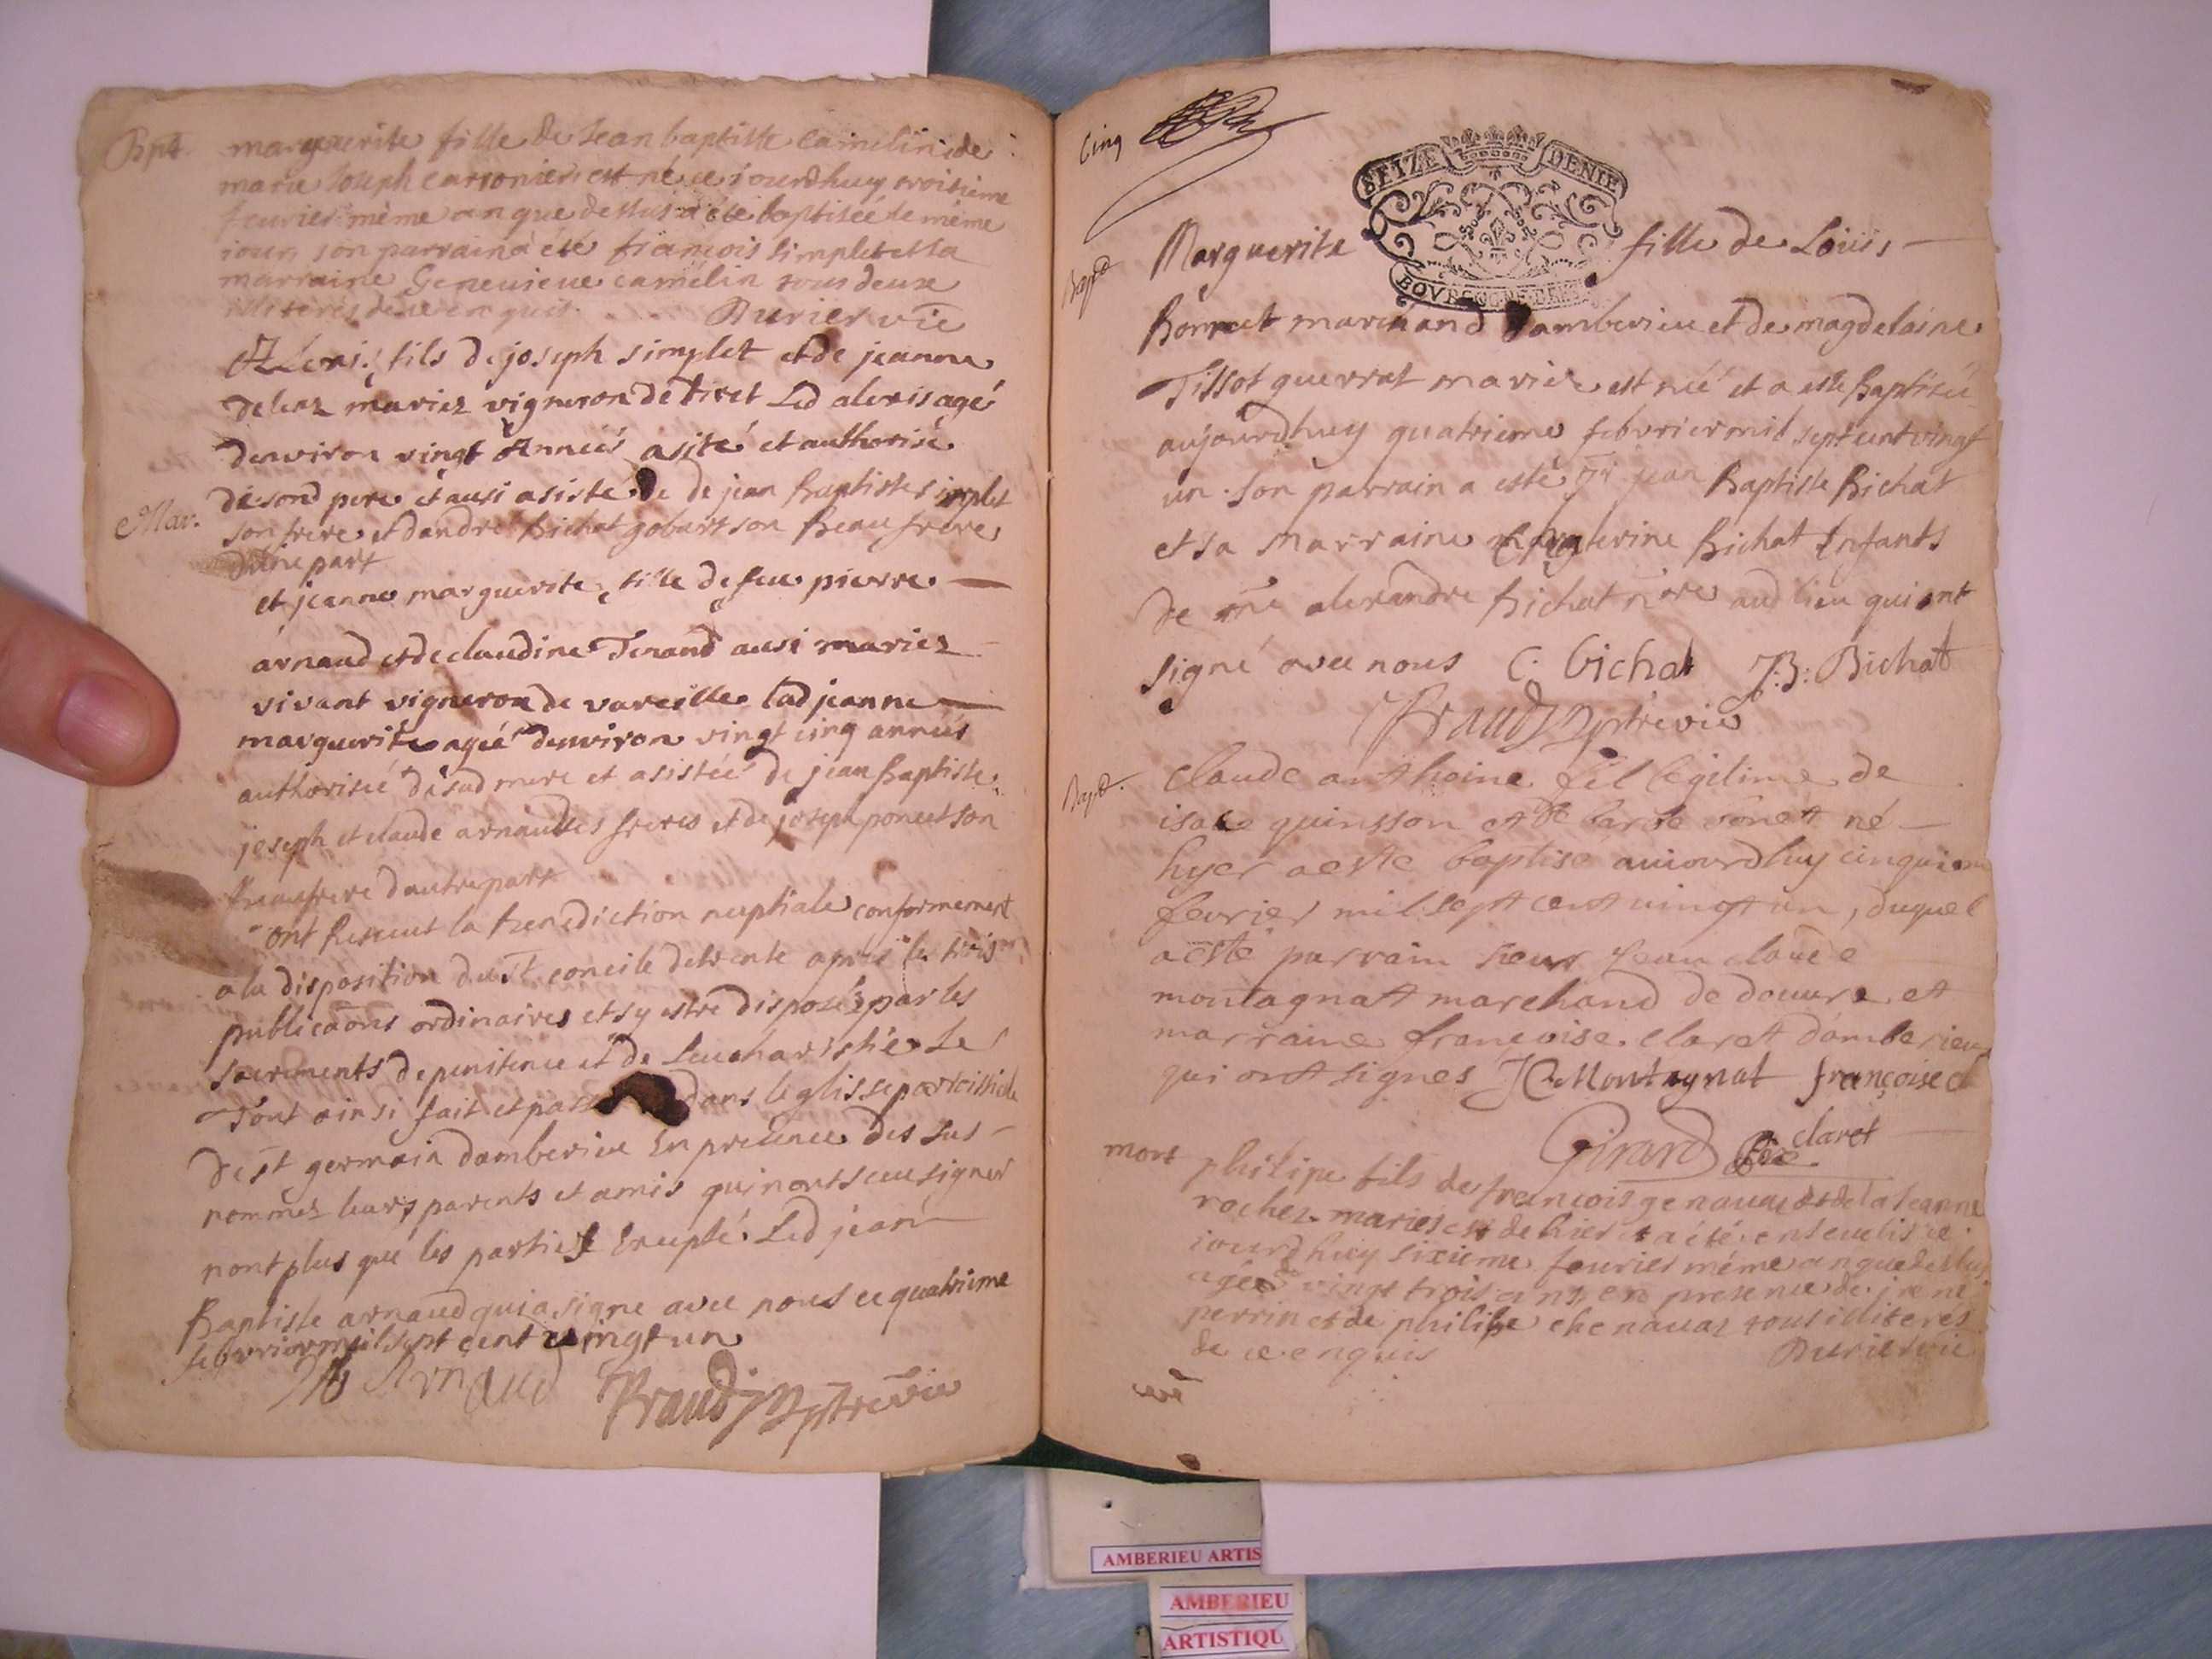 Bpt. marguerite fille de Jean baptiste camelin et de
marie Joseph carronier est né ce jourdhuy troisieme
feurier même an que dessus a été baptiseé le même
jour, son parrain a été françois simplet et la
marraine Geneuieue camelin tous deux
illiterés de ce enquis. Durier vic
Alexis fils de joseph simplet et de jeanne
mariez vigneron de tiret Led alexis agé
denviron vingt Années asité et authorisé
Mar. de sond pere et ausi asisté de de jean Baptiste simplet
son frere et dandré Bichat gobart son Beau frere
dune part
et jeanne marguerite fille de feu pierre
arnaud et de claudine Tenand ausi mariez
vivant vigneron de vareille lad jeanne
marguerite ageé denviron vingt cinq années
authoriseé de sad mere et asistée de jean Baptiste
joseph et claude arnauds ses freres et de joseph poncet son
Beaufrere dautre part
ont Receut la Benediction nuptiale conformement
a la disposition du st concile de trente apres les trois
publicaons ordinaires et sy estre disposéz par les
sacrements de penitence et de Leucharistie Le
Tout ainsi fait et passé dans leglisse paroissiale
de st germain damberieu En presence des sus
nommez leurs parents et amis qui nont sceu signer
non plus que les parties Excepté Led jean
Baptiste arnaud qui a signe avec nous ce quatrieme
febvrier mil sept cent vingt un
Arnaud Braud ptre vic
Cinq
SEIZE DENIE
Bapt. Marguerite fille de Louis
BOVRG
Bonnet marchand damberieu et de magdelaine
Tissot guerrat mariez est neé et a esté Baptiseé
aujourdhuy quatrieme febvrier mil sept cent vingt
un. son parrain a esté jean Baptiste Bichat
et sa Marraine Bichat Enfants
de me alexandre Bichat nore aud lieu qui ont
signé avec nous C. bichat J.B. Bichat
Braud ptre vic
Bapt. claude anthoine fil legitime de
isace quinsson et de né
hyer a este baptisé aujourdhuy cinquiem
fevrier mil sept cent vingt un, duquel
a esté parrain sieur Jean claude
montagnat marchand de douure et
marraine françoise claret damberieu
qui ont signes JC Montagnat françoise
Girard claret
mort philipe fils de françois genauaz et de la jeanne
rochez mariés est de hier et a été enseuelis ce
jourdhuy sixieme feurier même an que dessus
agé vingt trois ans en presence de irené
perrin et de philipe chenauaz tous illiterés
de ce enquis Durier vic
AMBERIEU ARTIS
AMBERIEU
ARTISTIQU